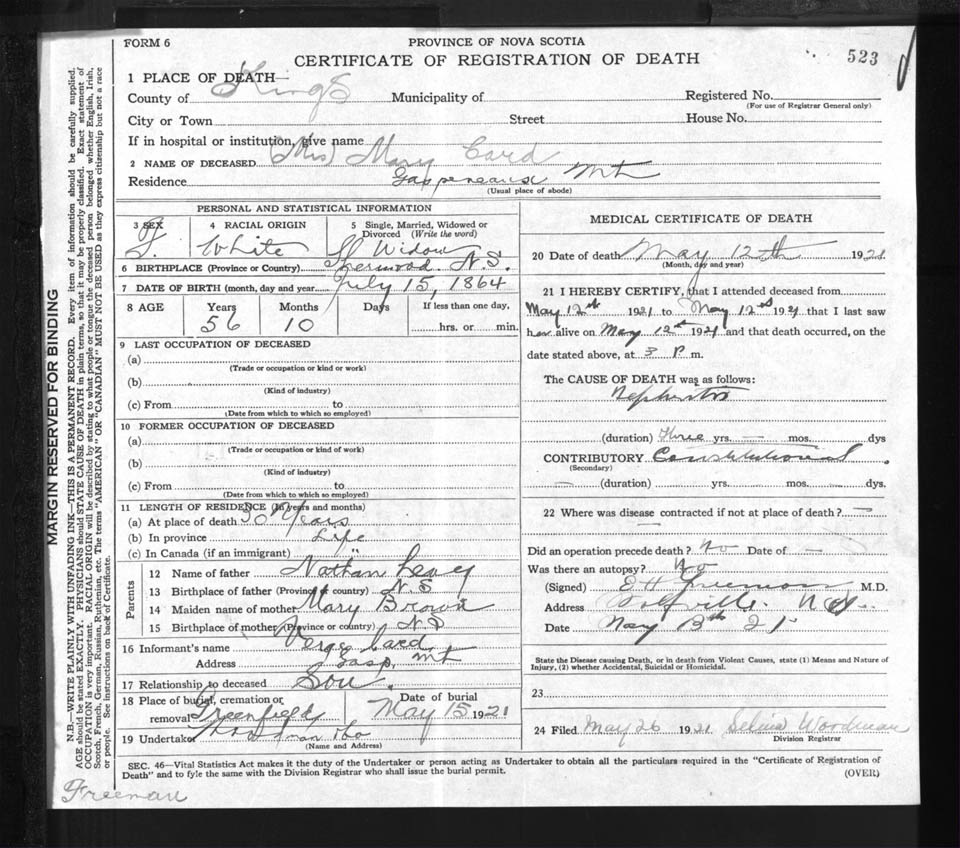 FORM 6
PROVINCE OF NOVA SCOTIA
CERTIFICATE OF REGISTRATION OF DEATH
523
1 PLACE OF DEATH—
County of Kings Municipality of Registered No.
(For use of Registrar General only)
City or Town Street House No.
If in hospital or institution, give name
2 NAME OF DECEASED (Mrs) Mary Card
Residence Gaspereaux Mt
(Usual place of abode)
PERSONAL AND STATISTICAL INFORMATION
3 SEX 4 RACIAL ORIGIN 5 Single, Married, Widowed or Divorced (Write the word)
F. White Widow
6 BIRTHPLACE (Province or Country) Sherwood. N.S.
7 DATE OF BIRTH (month, day and year) July 15, 1864
8 AGE Years Months Days If less than one day,
56 10 hrs. or min.
9 LAST OCCUPATION OF DECEASED
(a)
(Trade or occupation or kind or work)
(b)
(Kind of industry)
(c) From to
(Date from which to which so employed)
10 FORMER OCCUPATION OF DECEASED
(a)
(Trade or occupation or kind of work)
(b)
(Kind of industry)
(c) From to
(Date from which to which so employed)
11 LENGTH OF RESIDENCE (In years and months)
(a) At place of death 30 Years
(b) In province Life
(c) In Canada (if an immigrant) "
Parents
12 Name of father Nathan Levy
13 Birthplace of father (Province or country) N.S
14 Maiden name of mother Mary Brown
15 Birthplace of mother (Province or country) N.S
16 Informant's name Card
Address Gasp, Mt
17 Relationship to deceased Son
18 Place of burial, cremation or removal Greenfield Date of burial May 15 1921
19 Undertaker
(Name and Address)
MEDICAL CERTIFICATE OF DEATH
20 Date of death May 12th 1921
(Month, day and year)
21 I HEREBY CERTIFY, that I attended deceased from
May 12th 1921 to May 12th 1921 that I last saw
her alive on May 12th 1921 and that death occurred, on the
date stated above, at 3 P m.
The CAUSE OF DEATH was as follows:
Nephritis
(duration) Three yrs. — mos. dys
CONTRIBUTORY Constitutional
(Secondary)
— (duration) yrs. mos. dys.
22 Where was disease contracted if not at place of death? —
—
Did an operation precede death? No Date of —
Was there an autopsy? No
(Signed) E H Freeman M.D.
Address Wolfville. N.S.
Date May 13th 21
State the Disease causing Death, or in death from Violent Causes, state (1) Means and Nature of
Injury, (2) whether Accidental, Suicidal or Homicidal.
23
24 Filed May 26 1921 Selina Woodman
Division Registrar
SEC. 46—Vital Statistics Act makes it the duty of the Undertaker or person acting as Undertaker to obtain all the particulars required in the "Certificate of Registration of
Death" and to fyle the same with the Division Registrar who shall issue the burial permit.
(OVER)
Freeman
MARGIN RESERVED FOR BINDING
N.B.—WRITE PLAINLY WITH UNFADING INK—THIS IS A PERMANENT RECORD. Every item of information should be carefully supplied.
AGE should be stated EXACTLY. PHYSICIANS should STATE CAUSE OF DEATH in plain terms, so that it may be properly classified. Exact statement of
OCCUPATION is very important. RACIAL ORIGIN will be described by stating to what people or tongue the deceased person belonged, whether English, Irish,
Scotch, French, German, Russian, Ruthenian, etc. The terms "AMERICAN" OR "CANADIAN" MUST NOT BE USED as they express citizenship but not a race
or people. See instructions on back of Certificate.